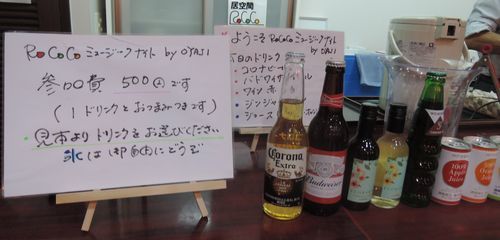 RoCoCo ミュージークナイト by OYAJI
参加費 500円です
(1ドリンクとおつまみつきです)
見本よりドリンクをお選びください
氷は御自由にどうぞ
居空間
RoCoCo
ようこそ RoCoCo ミュージークナイト
by OYAJI
本日のドリンク
・コロナビール
・バドワイザー
・ワイン 赤
・ジンジャー
・ジュース
Corona
Extra
Budweiser
100%
Apple
Juice
100%
Juice